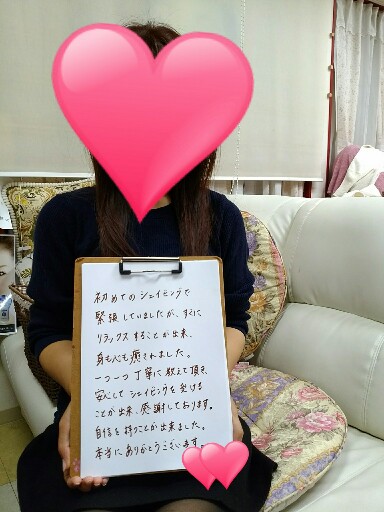 初めてのシェイビングで
緊張していましたが、すぐに
リラックスすることが出来、
身も心も癒されました。
一つ一つ丁寧に教えて頂き、
安心してシェイビングを受ける
ことが出来、感謝しております。
自信を持つことが出来ました。
本当にありがとうございます。